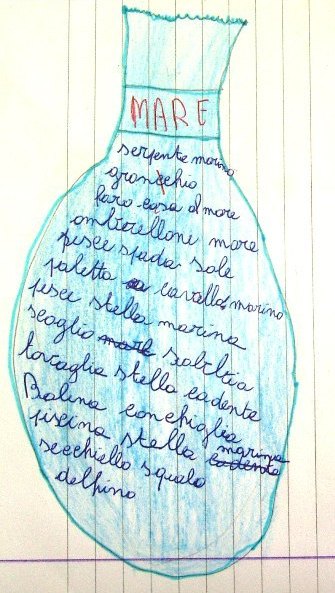 MARE
serpente marino
granchio
faro casa al mare
ombrellone mare
pesce spada sole
paletta cavallumarino
pesce stella marina
scoglio sabbia
tovaglia stella cadente
Balina conchiglia
piscina stella marina
secchiello squalo
delfino